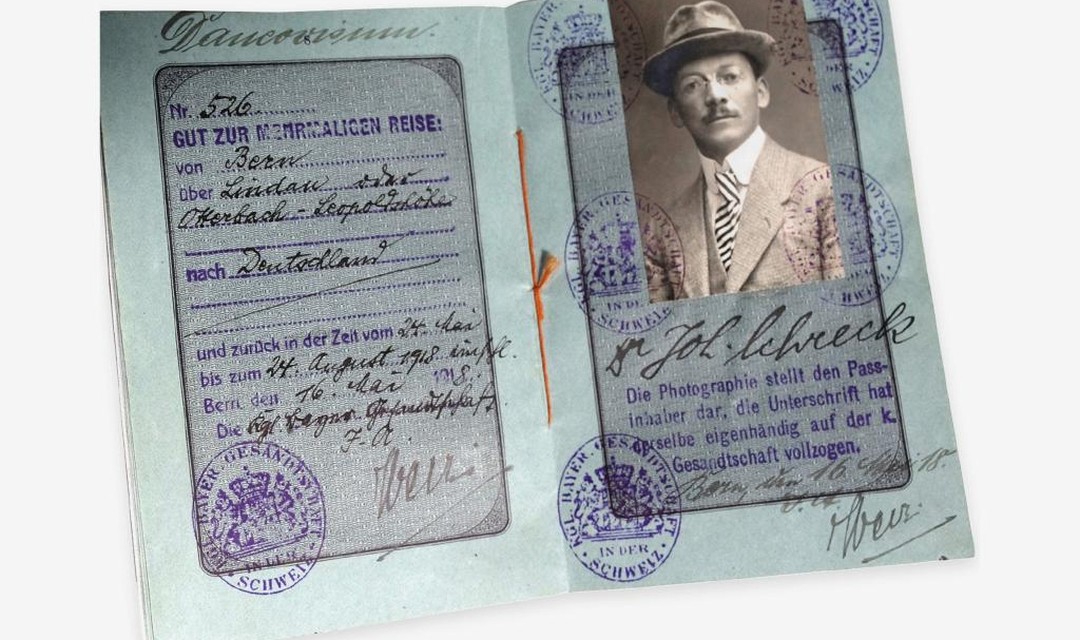 Dauervisum.
Nr. 526
GUT ZUR MEHRMALIGEN REISE:
von Bern
über Lindau oder
Otterbach - Leopoldshöhe
nach Deutschland
und zurück in der Zeit vom 24. Mai
bis zum 24. August 1918
Bern, den 16. Mai 1918.
Die Kgl. Bayer. Gesandtschaft
KGL. BAYER. GESANDTSCHAFT
IN DER
SCHWEIZ
Dr Joh. Schreck
Die Photographie stellt den Pass-
inhaber dar, die Unterschrift hat
derselbe eigenhändig auf der k.
Gesandtschaft vollzogen.
Bern, den 16. Mai 18.
KGL. BAYER. GESANDTSCHAFT
IN DER
SCHWEIZ